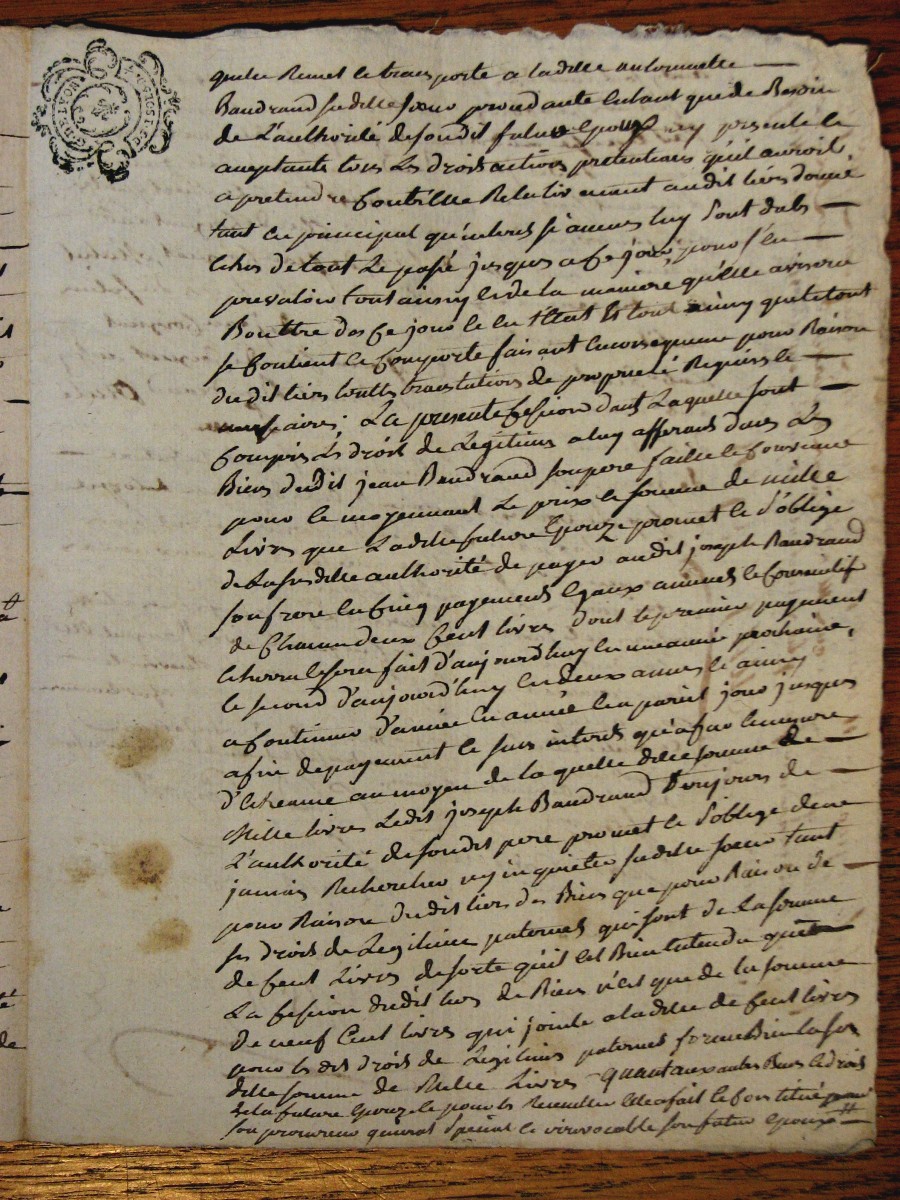 quitte Remet et transporte a ladite
Baudrand sadite sœur procedante entant que de Besoin
de L'authorité desondit futur Epoux icy presente et
acceptante tous Les droits actions pretentions quil auroit
a pretendre Contr'elle Relativement audit tiers donné
tant en principal qu'interets si aucuns luy sont dubs
echus de tout Le passé jusques a Ce jour, pour s'en
prevaloir tout ainsy et de la maniere qu'elle avisera
Bon être des Ce jour et en l'Etat Et tout ainsy que letout
se Contient et Comporte faisant enconsequence pour Raison
dudit tiers touttes translations de proprieté Requises et
necessaires; La presente Cession dans Laquelle sont
Compris Les droits de Legitime a luy afferants dans Les
Biens dudit jean Baudrand sonpere faitte et Convenue
pour et moyennant Le prix et somme de mille
Livres que Ladite future Epouze promet et s'oblige
de Lasusditte authorité de payer audit joseph Baudrand
sonfrere en Cinq payements egaux annuels et Consecutifs
de Chacun deux Cent livres dont le premier payement
echerra et sera fait d'aujourd'huy en une année prochaine,
le second d'aujourd'huy en deux années et ainsy
a Continuer d'année en année en pareil jour jusques
afin depayement et sans interets qu'a faute
d'Echeance au moyen de la quelle ditte somme de
Mille livres Ledit joseph Baudrand Toujours de
L'authorité desondit pere promet et s'oblige dene
jamais Rechercher ny inquietter sadite sœur tant
pour Raison dudit tiers des Biens que pour Raison de
ses droits de Legitime paternels qui sont de La somme
de Cent Livres desorte qu'il est Bien entendu que
La Cession dudit tiers de Biens n'est que de la somme
De neuf Cent livres qui jointe a la ditte de Cent livres
pour les dits droits de Legitime paternels forme Bien la sus
ditte somme de Mille Livres Quant aux autres Biens et droits
de la future Epouze et pour les Recueillir Elle a fait et Constitué pour
son procureur general special et irrevocable son futur epoux